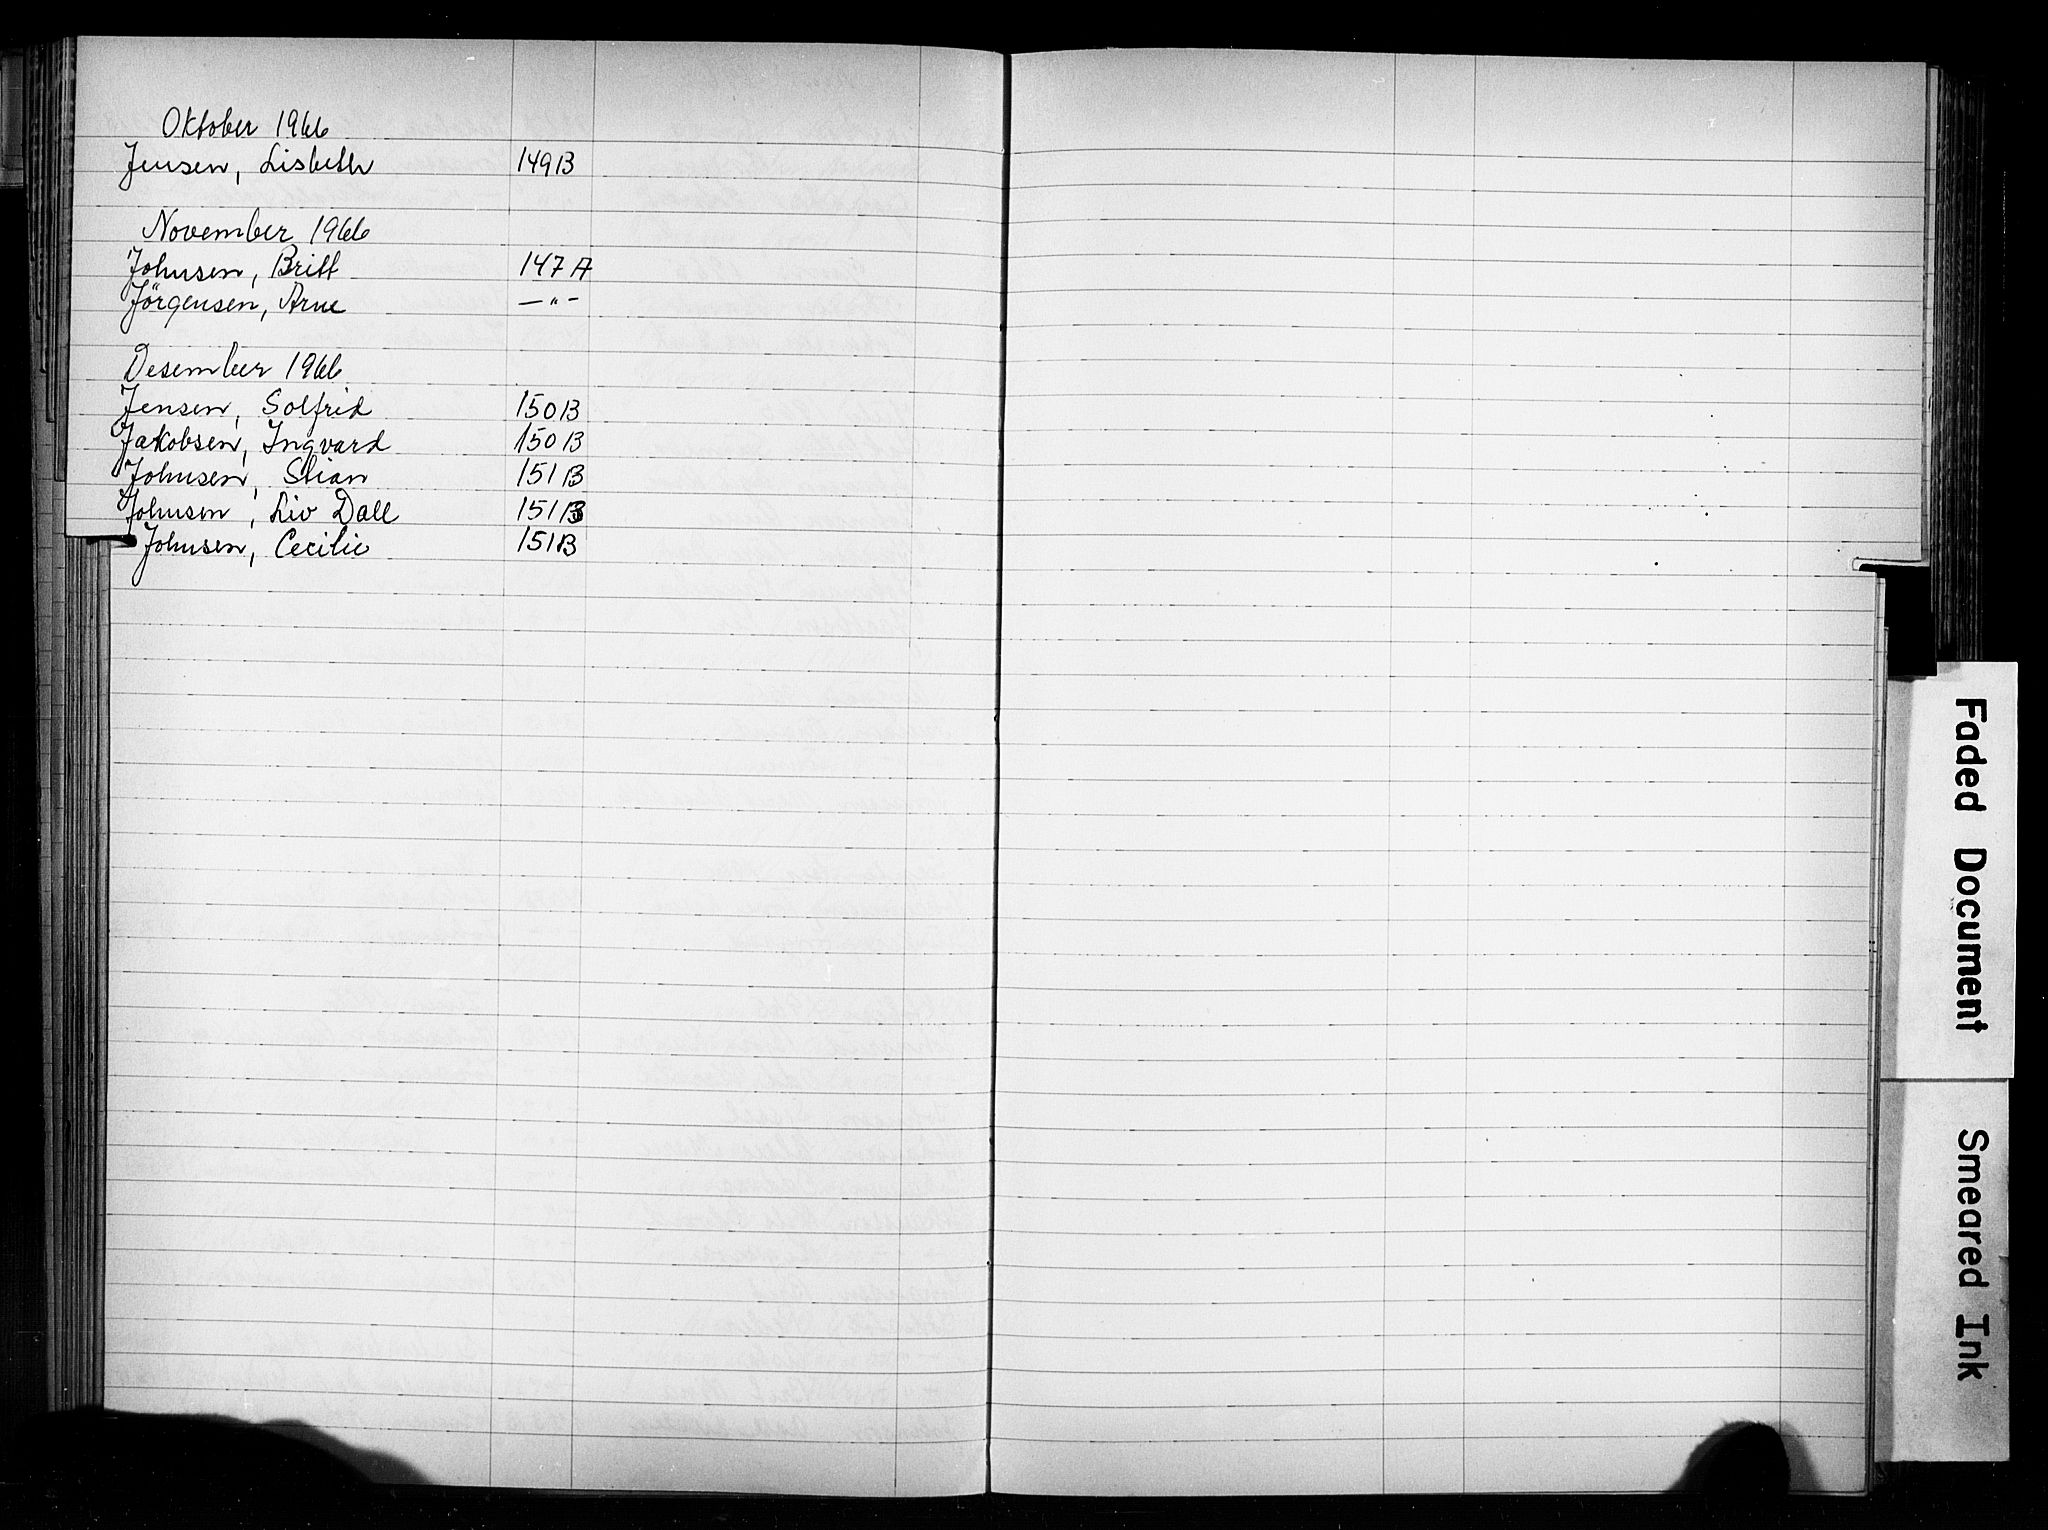 Oktober 1966
Jensen, Lisbeth 149B
November 1966
Johnsen, Britt 147 A
Jörgensen, Arne —"—
Desember 1966
Jensen, Solfrid 150B
Jakobsen, Ingvard 150B
Johnsen, Stian 151B
Johnsen, Liv Dall 151B
Johnsen, Cecilie 151B
Faded Document
Smeared Ink